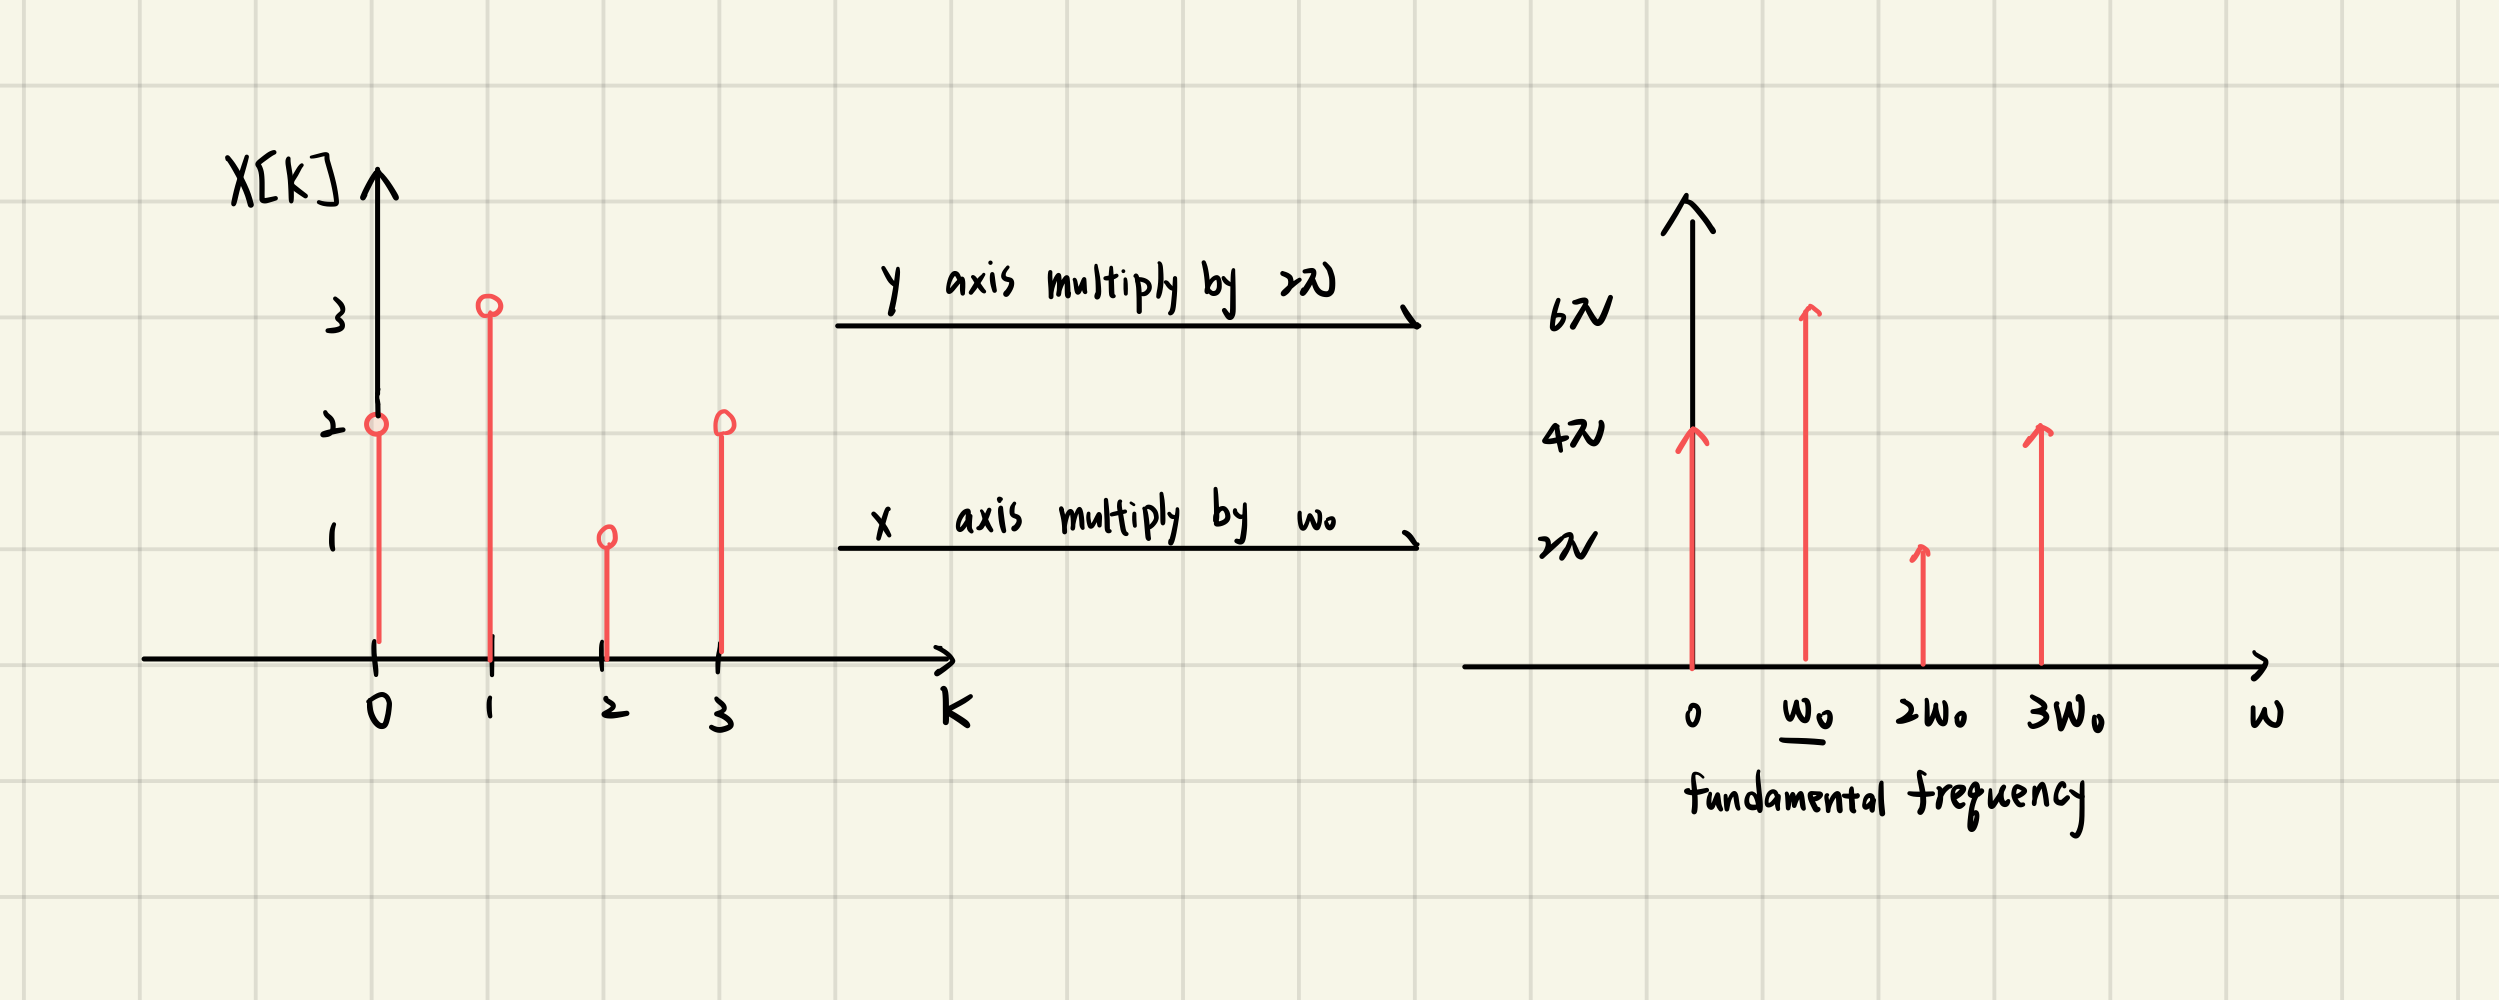 X[K]
3
2
1
0 1 2 3 K
y axis multiply by 2π
x axis multiply by w₀
6π
4π
2π
0 w₀ 2w₀ 3w₀ w
fundamental frequency